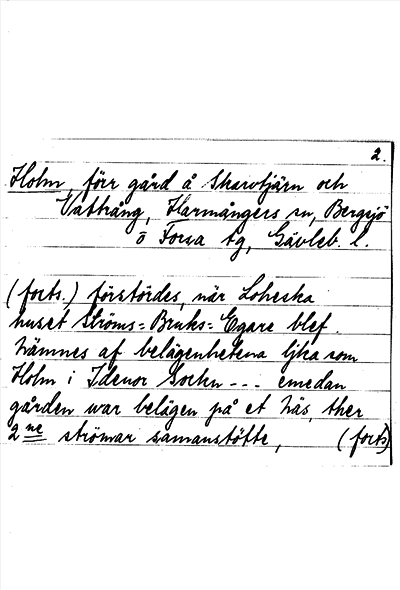 2.
Holm, förr gård å Skarvtjärn och
Vattrång, Harmångers sn, Bergsjö
o Forsa tg, Gävleb. l.
(forts.) förstördes, när Loheska
huset Ströms-Bruks-Egare blef.
hämnes af belägenhetena ljka som
Holm i Idenor Sockn --- emedan
gården war belägen på et näs, ther
2ne strömar samanstötte, (forts)